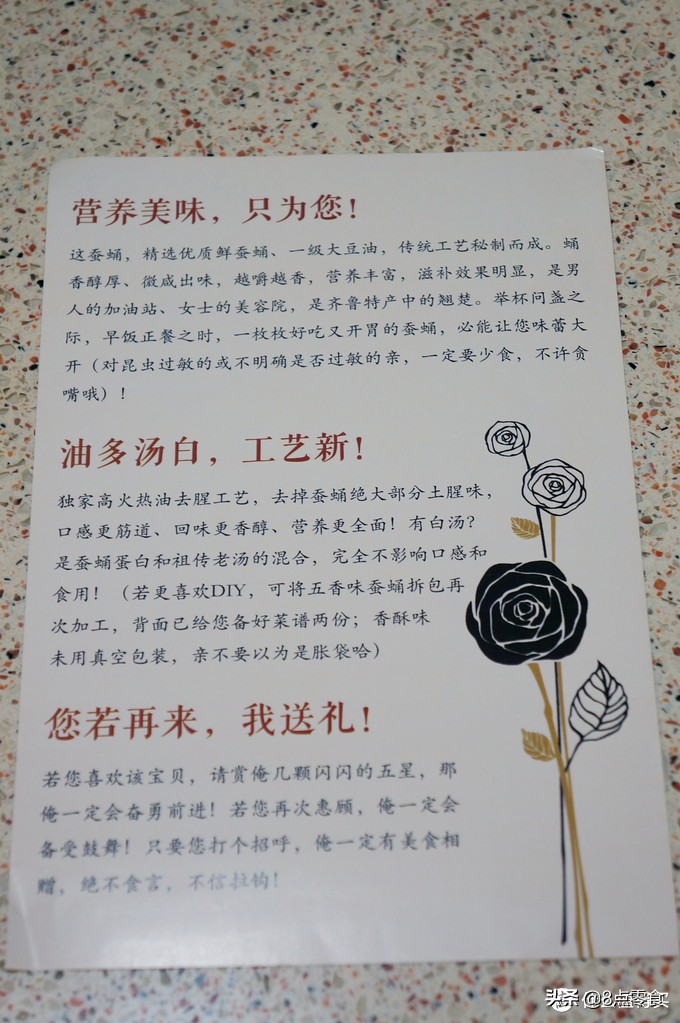 营养美味，只为您！
这蚕蛹，精选优质鲜蚕蛹、一级大豆油，传统工艺秘制而成。蛹
香醇厚、微咸出味，越嚼越香，营养丰富，滋补效果明显，是男
人的加油站、女士的美容院，是齐鲁特产中的翘楚。举杯问盏之
际，早饭正餐之时，一枚枚好吃又开胃的蚕蛹，必能让您味蕾大
开（对昆虫过敏的或不明确是否过敏的亲，一定要少食，不许贪
嘴哦）！
油多汤白，工艺新！
独家高火热油去腥工艺，去掉蚕蛹绝大部分土腥味，
口感更筋道、回味更香醇、营养更全面！有白汤？
是蚕蛹蛋白和祖传老汤的混合，完全不影响口感和
食用！（若更喜欢DIY，可将五香味蚕蛹拆包再
次加工，背面已给您备好菜谱两份；香酥味
未用真空包装，亲不要以为是胀袋哈）
您若再来，我送礼！
若您喜欢该宝贝，请赏俺几颗闪闪的五星，那
俺一定会奋勇前进！若您再次惠顾，俺一定会
备受鼓舞！只要您打个招呼，俺一定有美食相
赠，绝不食言，不信拉钩！
头条@8点零食